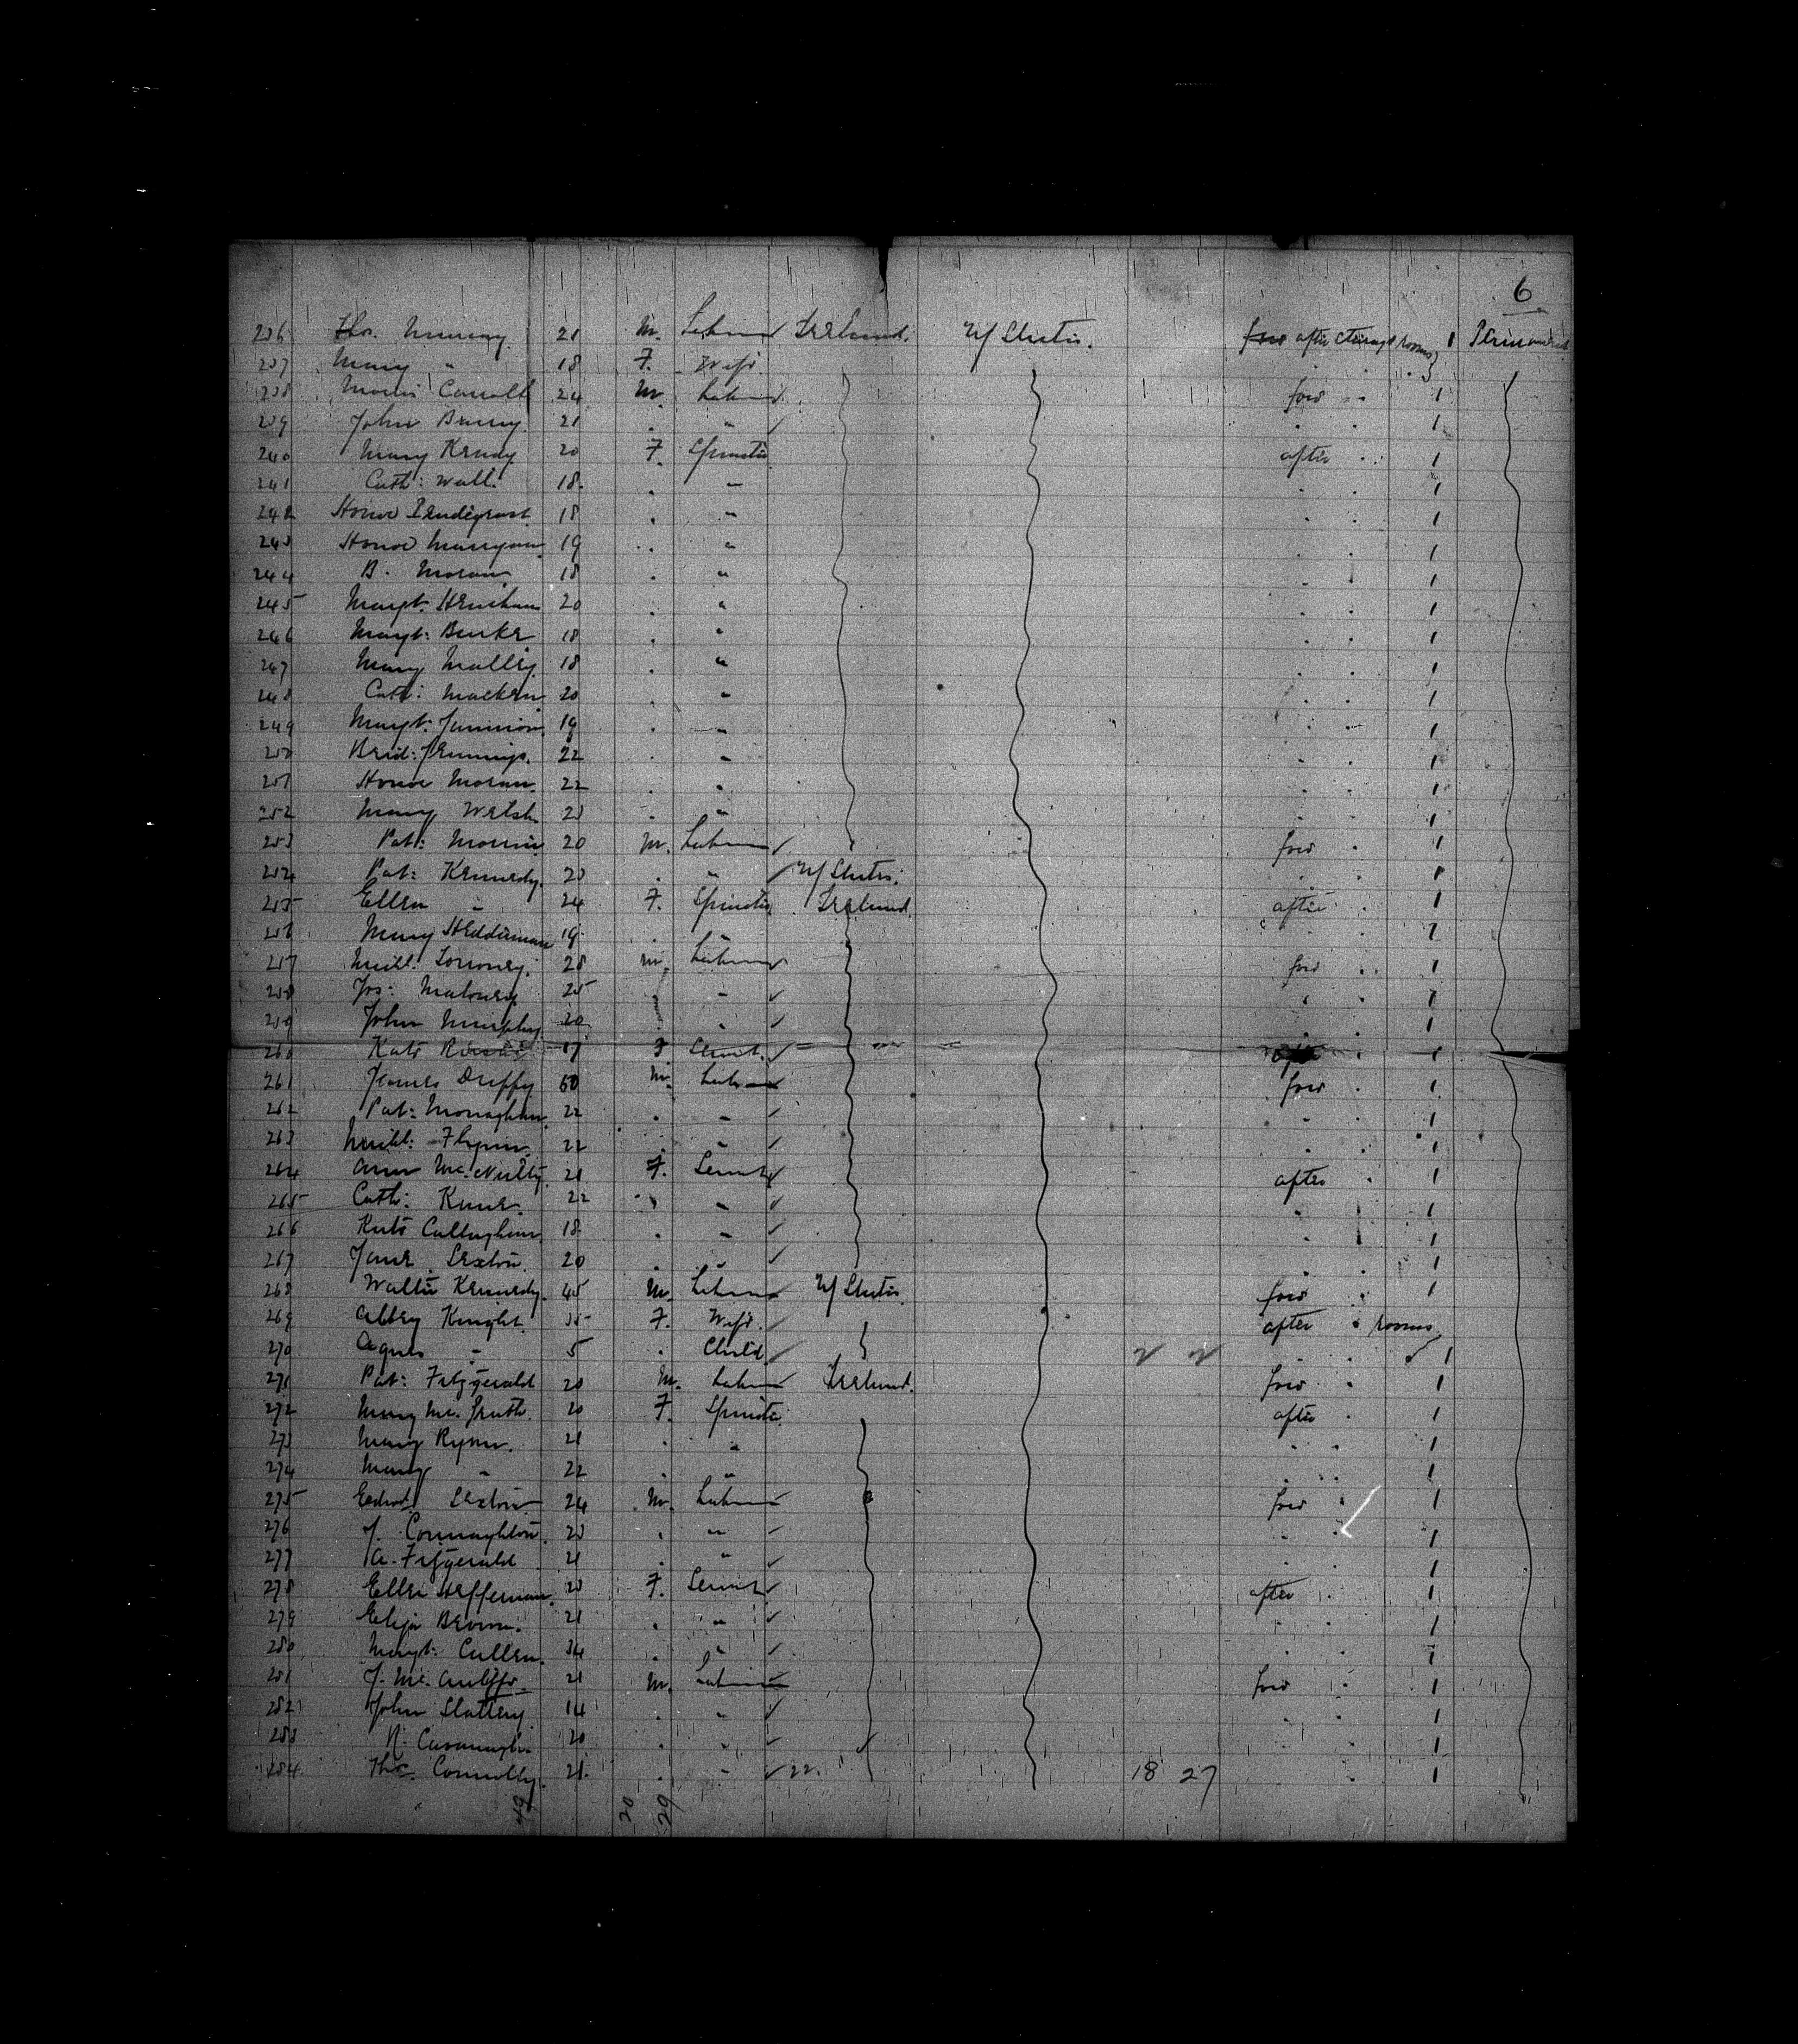 6
236 Thos. Murray 21 M. Labourer Ireland. U/States. fwd after steerage rooms 1 Permanent
237 Mary " 18 F. Wife.
238 Carroll 24 M. Labourer fwd " 1
239 John 21 . " . . 1
240 Mary 20 F. Spinster after . 1
241 Cath: Wall. 18. . " . . 1
242 Honor Prendigrast 18 . " . . 1
243 Honor 19 . " . . 1
244 B. Moran 18 . " . . 1
245 Margt. 20 . " . . 1
246 Margt: Burke 18 . " . . 1
247 Mary Malley 18 . " . . 1
248 Cath: 20 . " . . 1
249 Margt. 19 . " . . 1
250 Brid: Jennings. 22 . " . . 1
251 Honor Moran. 22 . " . . 1
252 Mary Welsh . " . . 1
253 Pat: 20 M. Labourer fwd . 1
254 Pat: Kennedy. . " U/States. . . 1
255 Ellen " 24 F. Spinster Ireland. after . 1
256 Mary Hedderman 19. . " . . 1
257 Michl. 28 M. Labourer fwd . 1
258 Jas: Maloney 25 . " . . 1
259 John Murphy 20 . " . . 1
260 Kate 17 F. Servt. . 1
261 James Duffy M. Labourer fwd . 1
262 Pat: Monaghan 22 . " . . 1
263 Michl: Flynn. 22 . " . . 1
264 Ann McNulty. 21 F. Servt after . 1
265 Cath: 22 . " . . 1
266 Kate Callaghan 18. . " . . 1
267 Jane Sexton. 20 . " . . 1
268 Walter Kennedy. 45 M. Labourer U/States. fwd . 1
269 Abbey Knight. F. Wife. after . rooms
270 Agnes " 5 . Child . . 1
271 Pat: Fitzgerald 20 M. Labourer Ireland. fwd . 1
272 Mary Mc. 20 F. Spinster. after . 1
273 Mary Ryan. 21 . " . . 1
274 Mary " 22 . " . . 1
275 Edwd. Sexton 24 M. Labourer fwd . 1
276 J. Connaughton . " . . 1
277 A. Fitzgerald 21 . " . . 1
278 Ellen Heffernan. F. Servt after . 1
279 Eliza Brown. 21 . " . . 1
280 Margt: Cullen. . " . . 1
281 J. McAuliffe. 21 M. Labourer fwd . 1
282 John Slattery 14 . " . . 1
283 Cavanagh 20 . " . . 1
284 Thos. Connolly. 21. . " 22. 18 27 . 1
49 20 29